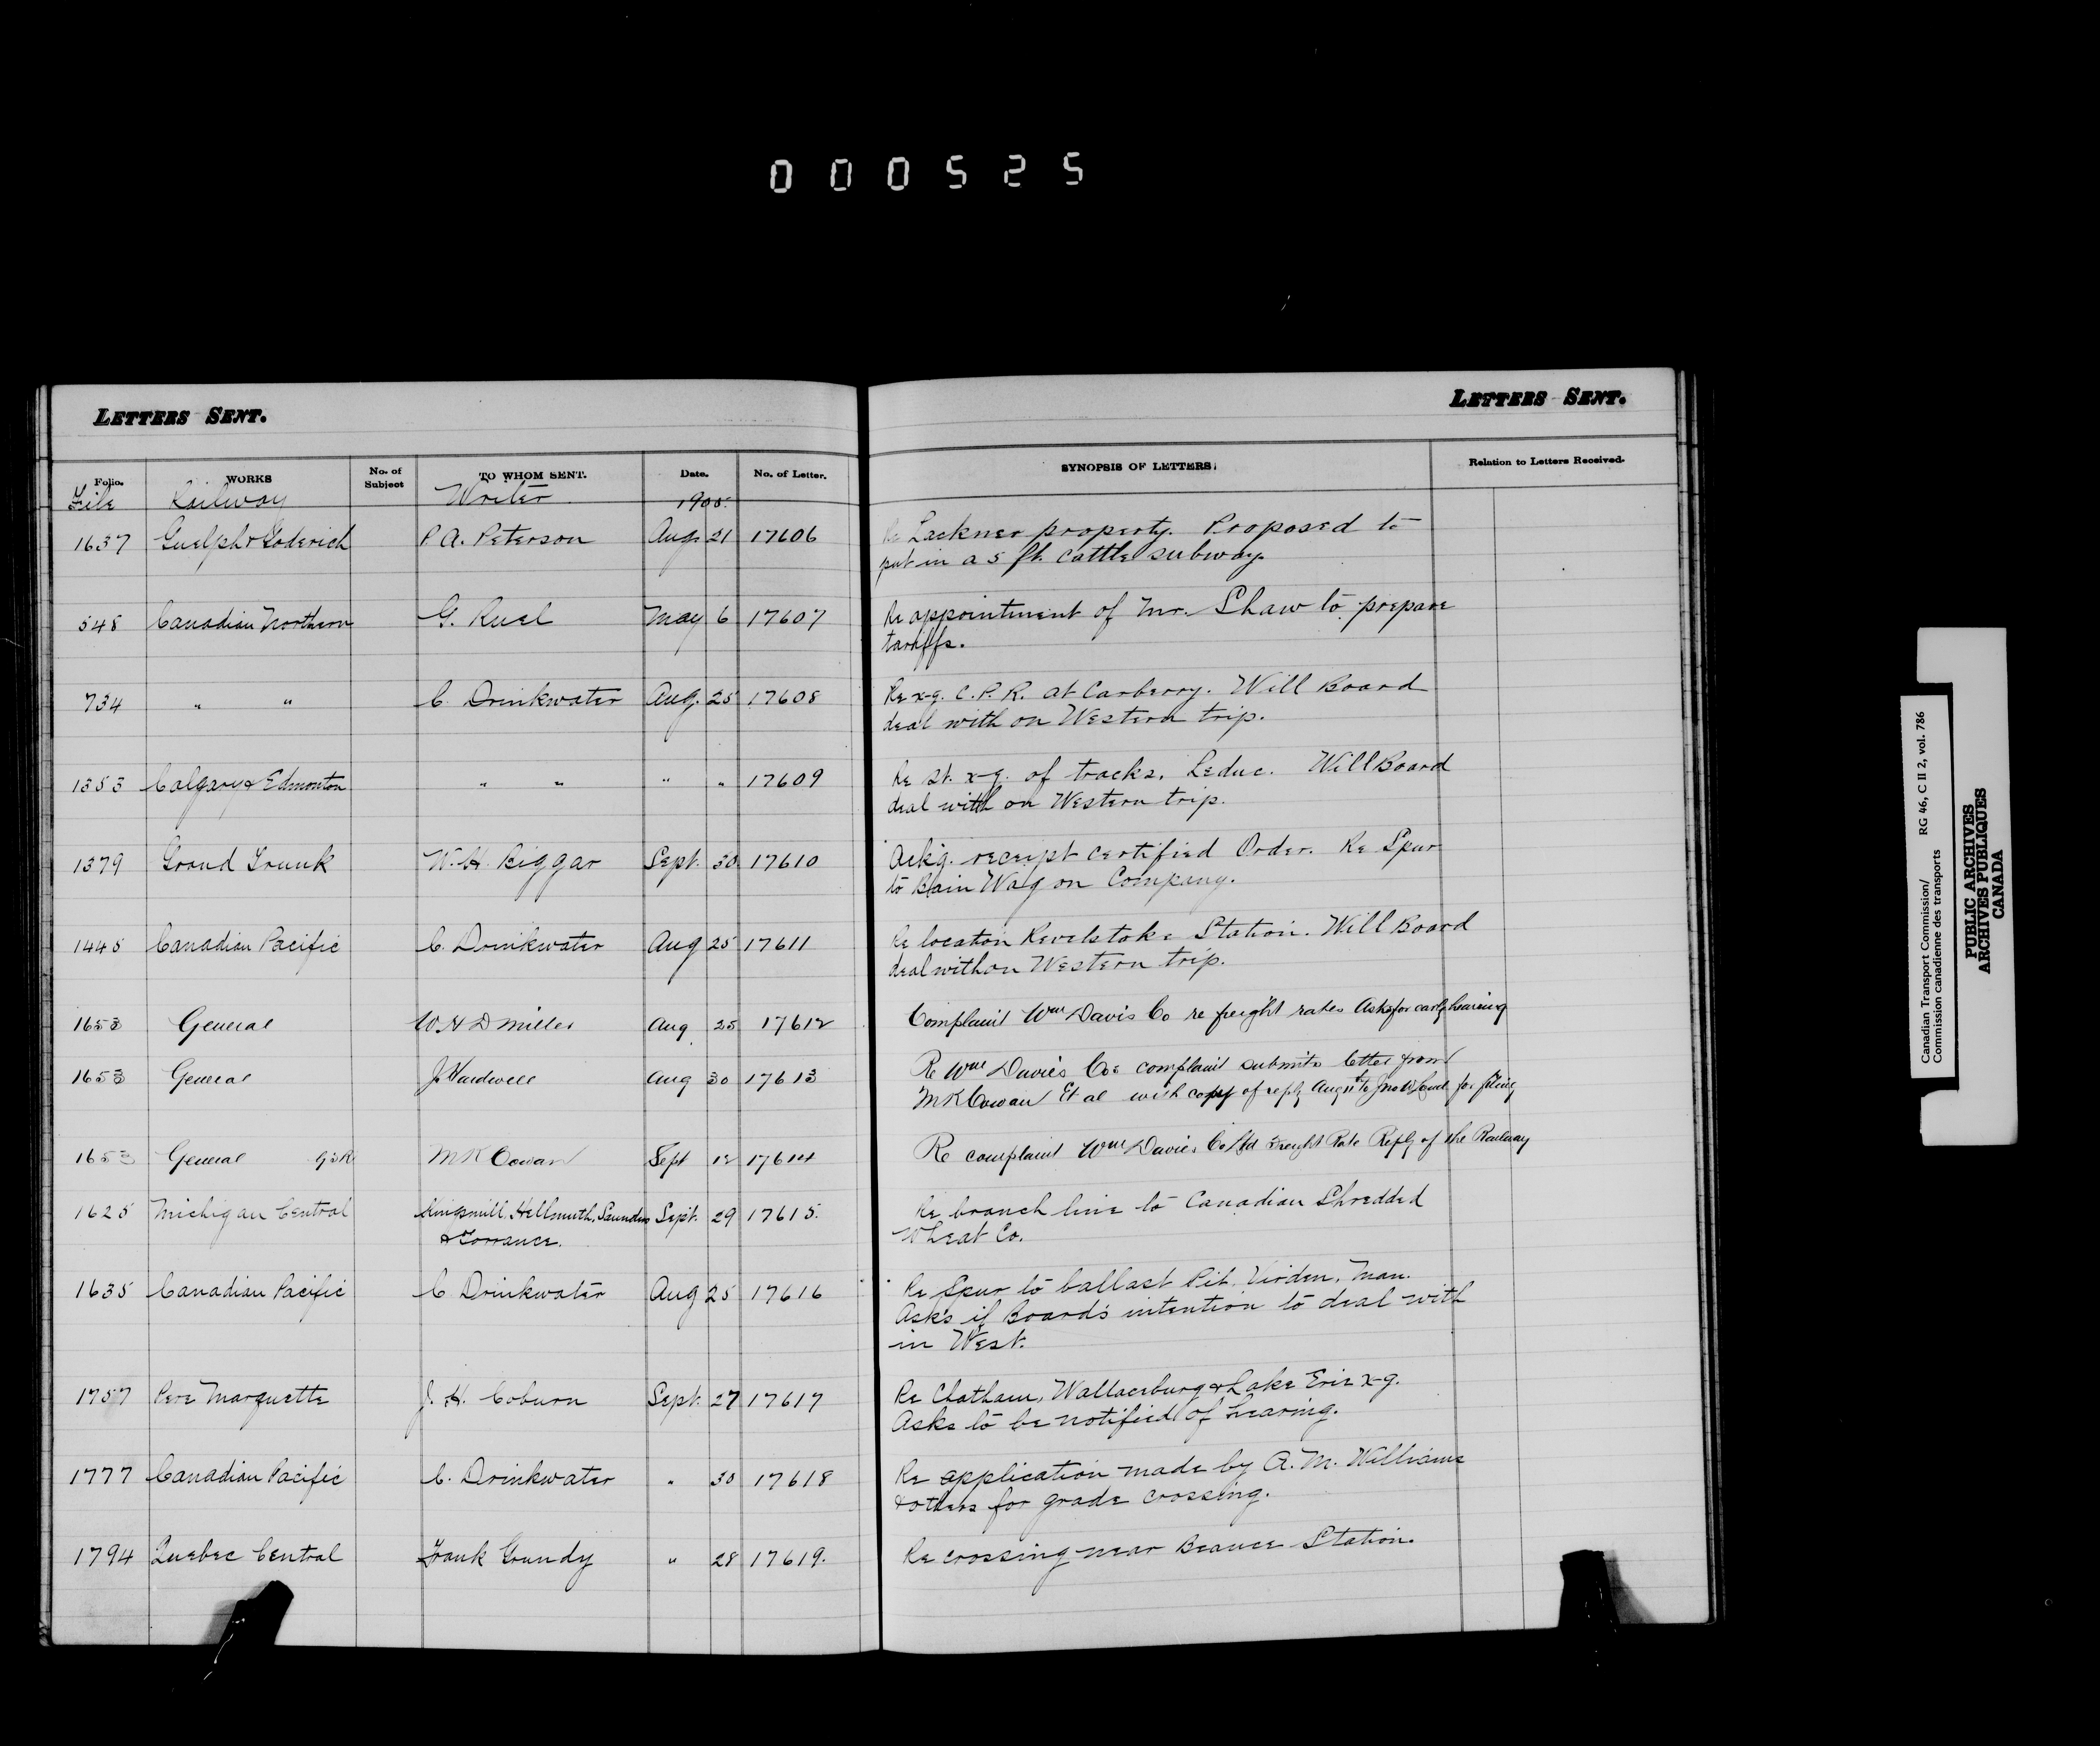 000525
LETTERS SENT.
LETTERS SENT.
Folio. WORKS No. of Subject TO WHOM SENT. Date. No. of Letter. SYNOPSIS OF LETTERS. Relation to Letters Received.
File Railway Writer 1905.
1637 Guelph & Goderich P. A. Peterson Aug. 21 17606 Re Lackner property. Proposed to
put in a 5 ft. cattle subway.
548 Canadian Northern G. Ruel May 6 17607 Re appointment of Mr. Shaw to prepare
tariffs.
734 " " C. Drinkwater Aug. 25 17608 Re x-g. C.P.R. at Carberry. Will Board
deal with on Western trip.
1353 Calgary & Edmonton " " " " 17609 Re St. x-g. of tracks, Leduc. Will Board
deal with on Western trip.
1379 Grand Trunk W. H. Biggar Sept. 30 17610 Ack'g. receipt certified Order. Re Spur
to Bain Wagon Company.
1445 Canadian Pacific C. Drinkwater Aug 25 17611 Re location Revelstoke Station. Will Board
deal with on Western trip.
1653 General W. H. D Miller Aug 25 17612 Complaint Wm Davis Co re freight rates Asks for early hearing
1653 General J Hardwell Aug 30 17613 Re Wm Davies Cos complaint submits letter from
M K Cowan Et al with copy of reply for filing
1653 General G T R M K Cowan Sept 12 17614 Re complaint Wm Davies Co Ltd Freight Rate Reply of the Railway
1625 Michigan Central Kingsmill, Hellmuth, Saunders Sept. 29 17615. Re branch line to Canadian Shredded
& Torrance. Wheat Co.
1635 Canadian Pacific C Drinkwater Aug 25 17616 Re Spur to ballast Pit, Virden, Man.
Asks if Board's intention to deal with
in West.
1757 Pere Marquette J. H. Coburn Sept. 27 17617 Re Chatham, Wallaceburg & Lake Erie x-g.
Asks to be notified of hearing.
1777 Canadian Pacific C. Drinkwater " 30 17618 Re application made by A. M. Williams
& others for grade crossing.
1794 Quebec Central Frank Grundy " 28 17619. Re crossing near Beauce Station.
Canadian Transport Commission/ RG 46, C II 2, vol. 786
Commission canadienne des transports
PUBLIC ARCHIVES
ARCHIVES PUBLIQUES
CANADA